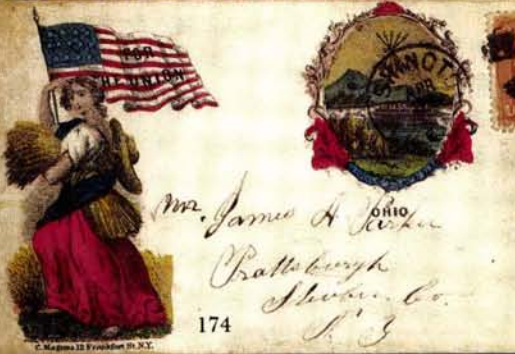 FOR
THE UNION
OHIO
Mr. James H Parker
Prattsburgh
Steuben Co.
N Y
174
C. Magnus 12 Frankfort St. N.Y.